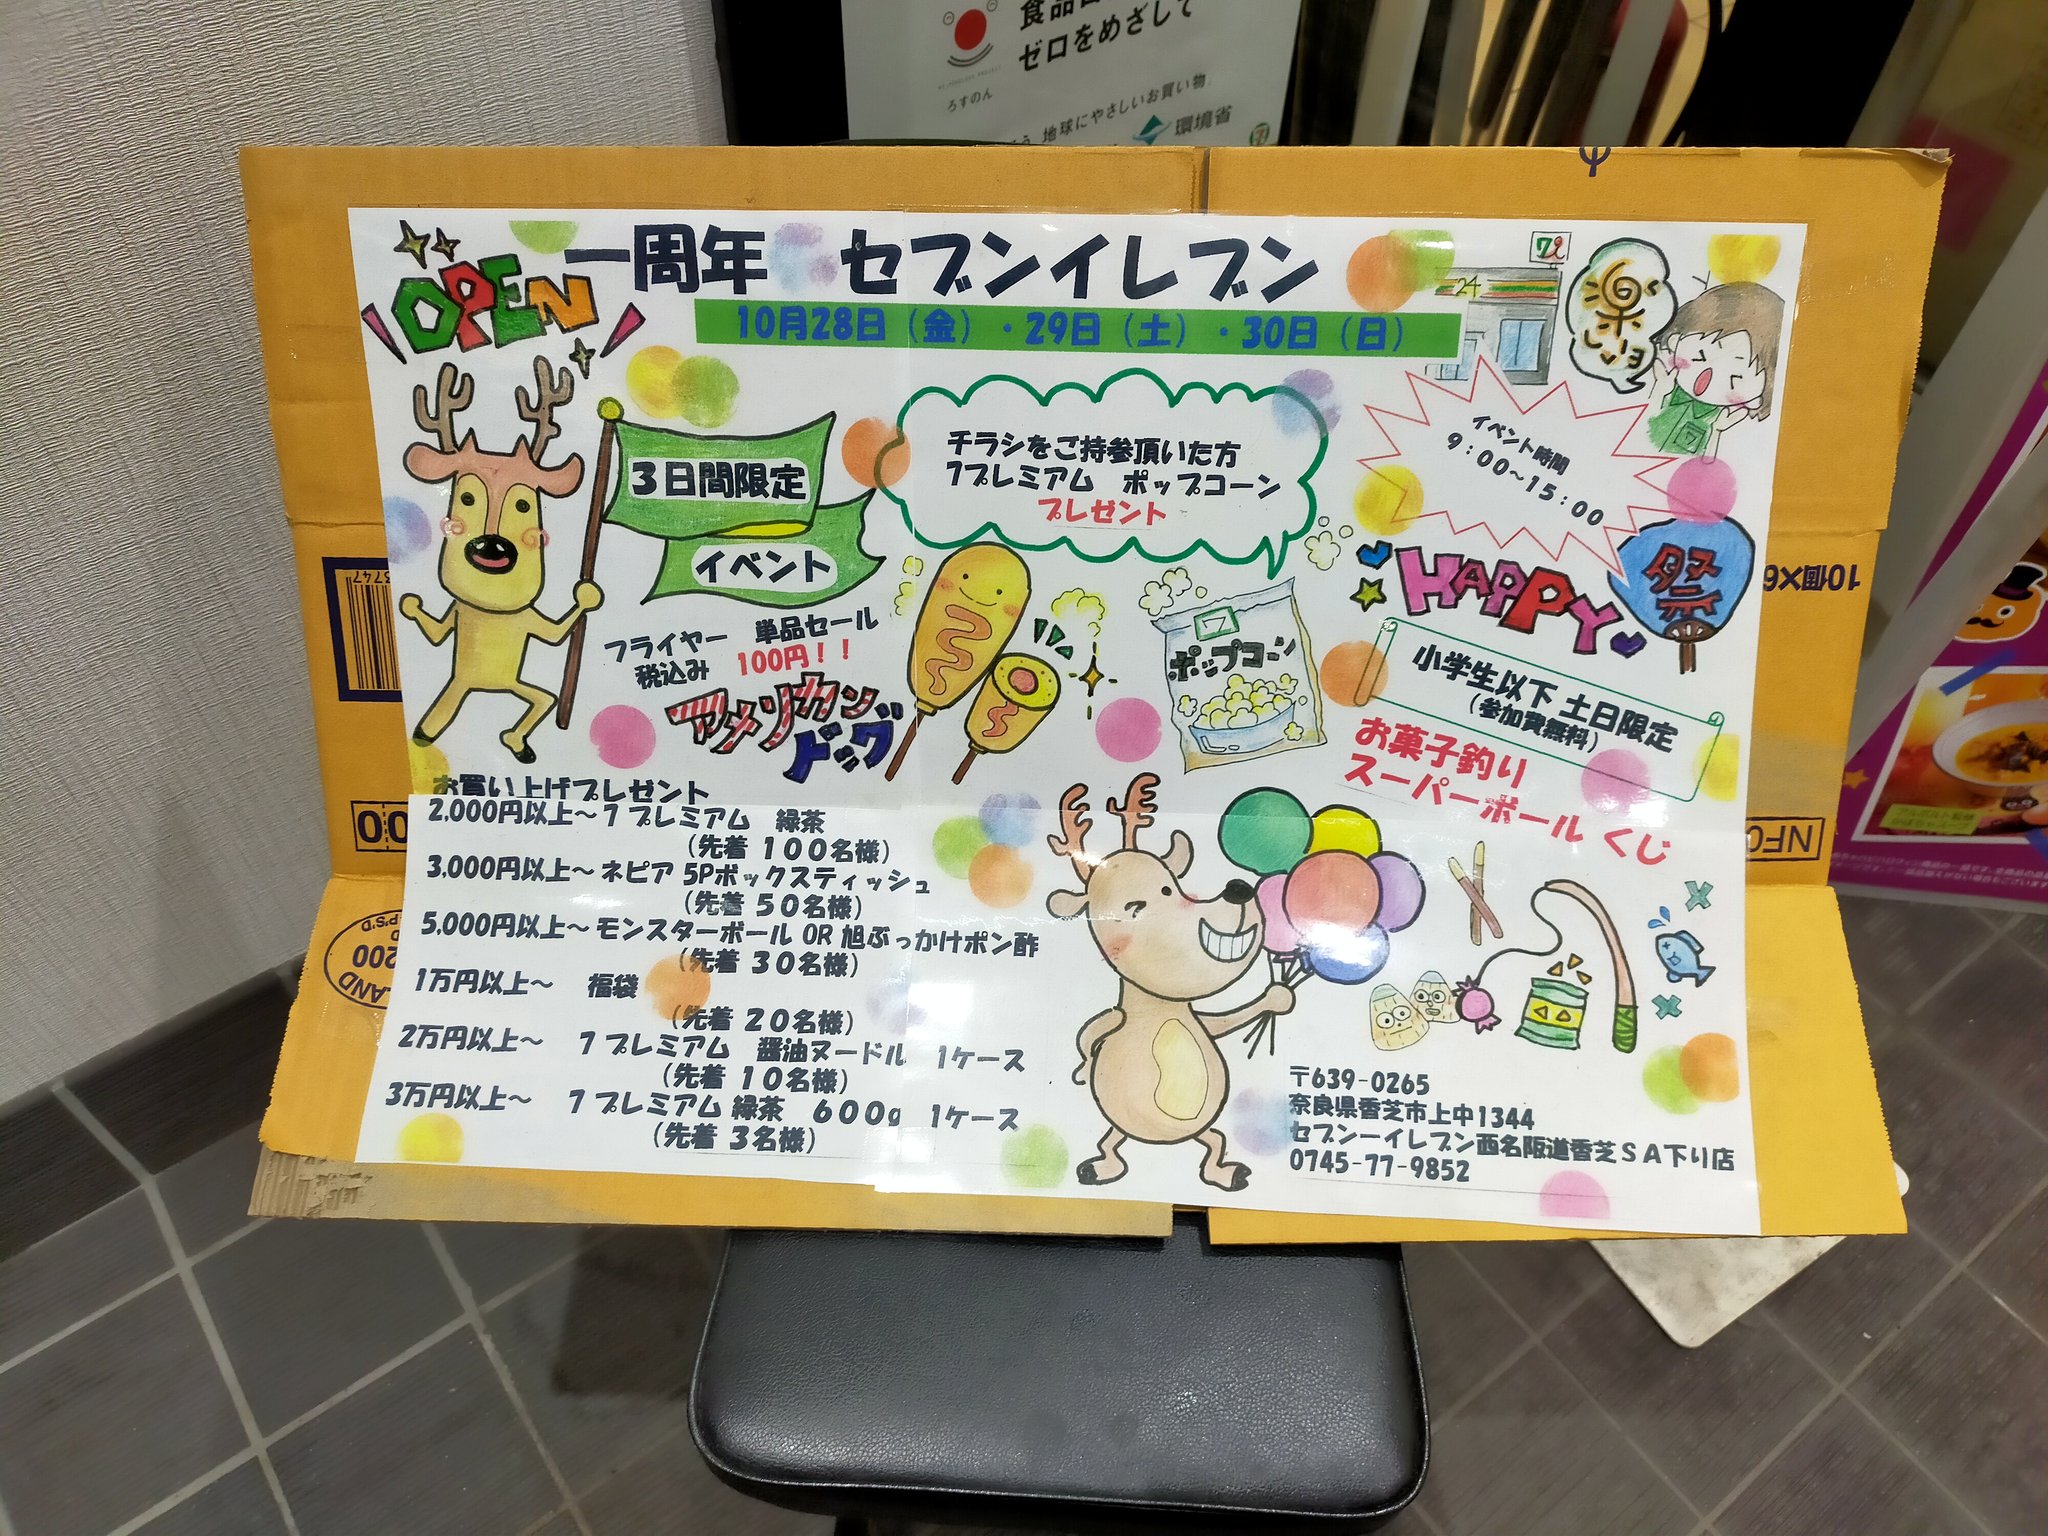 食品
ゼロをめざして
ろすのん
地球にやさしいお買い物
環境省
OPEN
一周年 セブンイレブン
10月28日（金）・29日（土）・30日（日）
24
楽しいヨ
3日間限定
イベント
チラシをご持参頂いた方
7プレミアム ポップコーン
プレゼント
イベント時間
9：00～15：00
HAPPY
祭
フライヤー 単品セール
税込み 100円！！
アメリカンドッグ
ポップコーン
小学生以下 土日限定
（参加費無料）
お菓子釣り
スーパーボール くじ
お買い上げプレゼント
2,000円以上～7プレミアム 緑茶
（先着 100名様）
3,000円以上～ネピア 5Pボックスティッシュ
（先着 50名様）
5,000円以上～モンスターボール OR 旭ぶっかけポン酢
（先着 30名様）
1万円以上～ 福袋
（先着 20名様）
2万円以上～ 7プレミアム 醤油ヌードル 1ケース
（先着 10名様）
3万円以上～ 7プレミアム 緑茶 600g 1ケース
（先着 3名様）
〒639-0265
奈良県香芝市上中1344
セブンーイレブン西名阪道香芝SA下り店
0745-77-9852
10個×6
3747
200